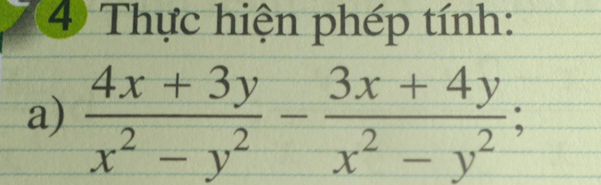 4 Thực hiện phép tính:
a) \frac{4x + 3y}{x^2 - y^2} - \frac{3x + 4y}{x^2 - y^2};